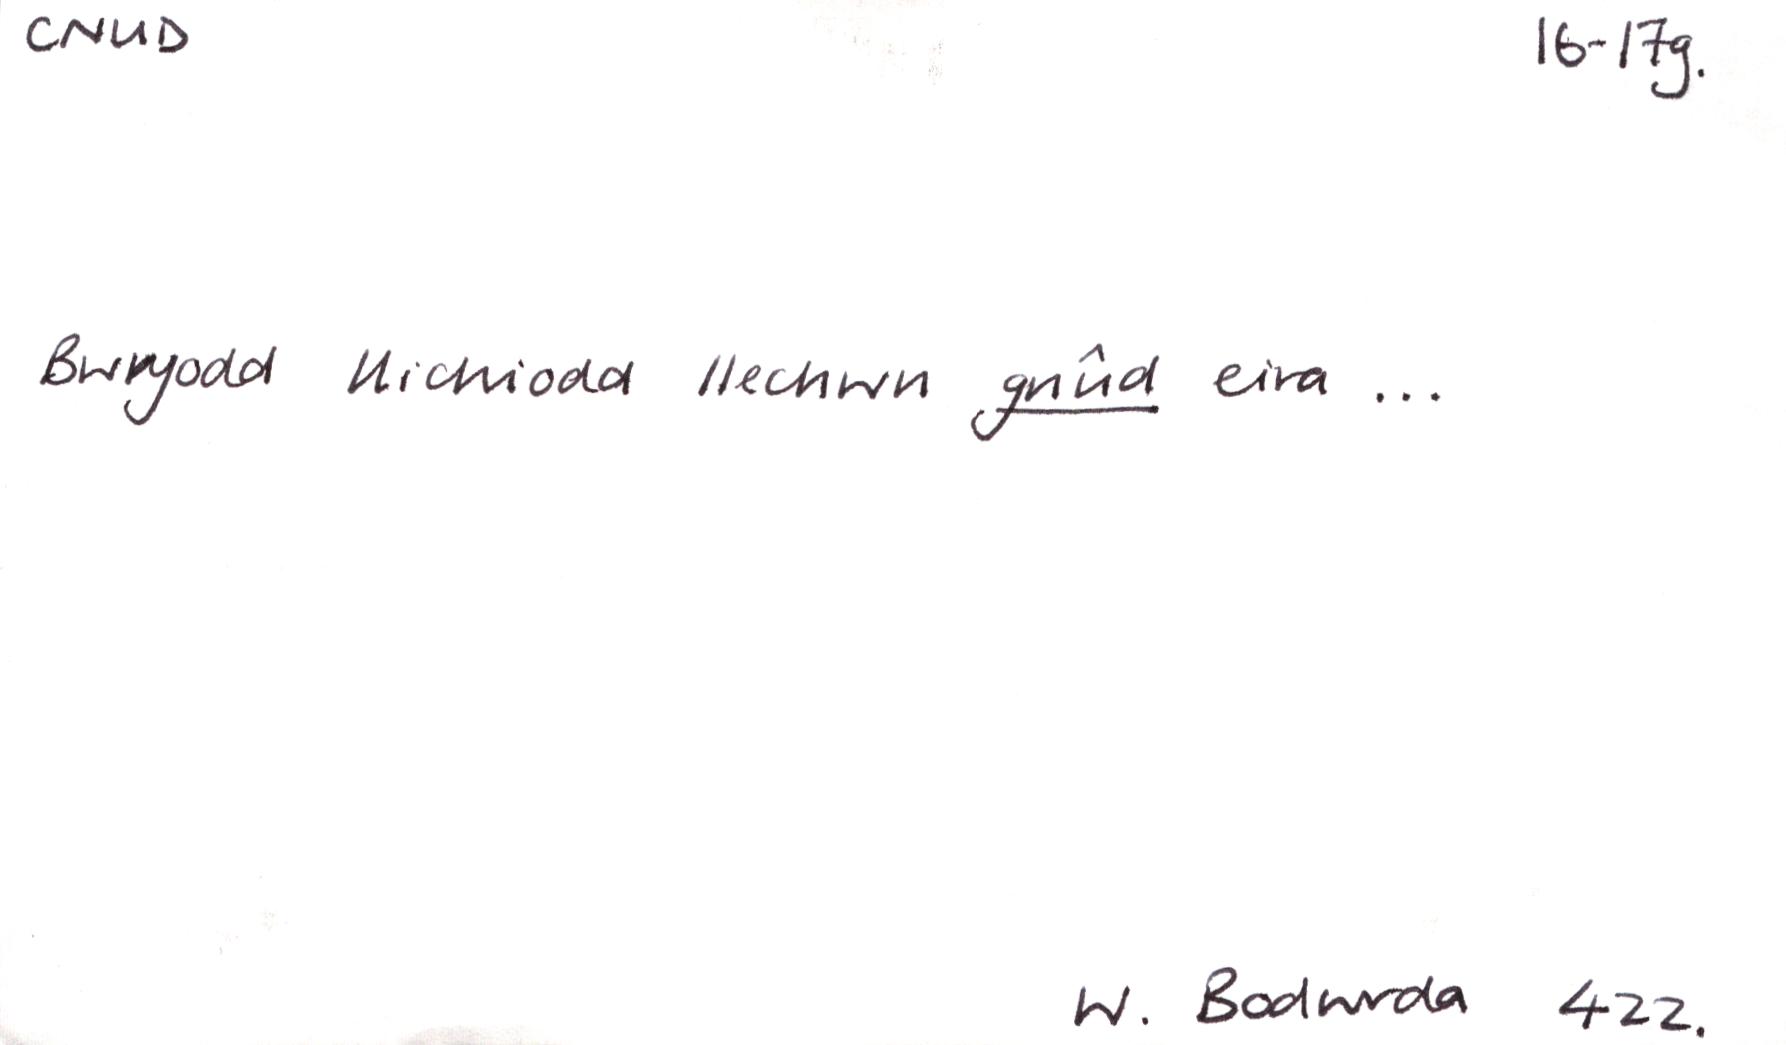 CNUD 16-17g.
Bwryodd lluchiodd llechwn gnûd eira ...
W. Bodwrda 422.